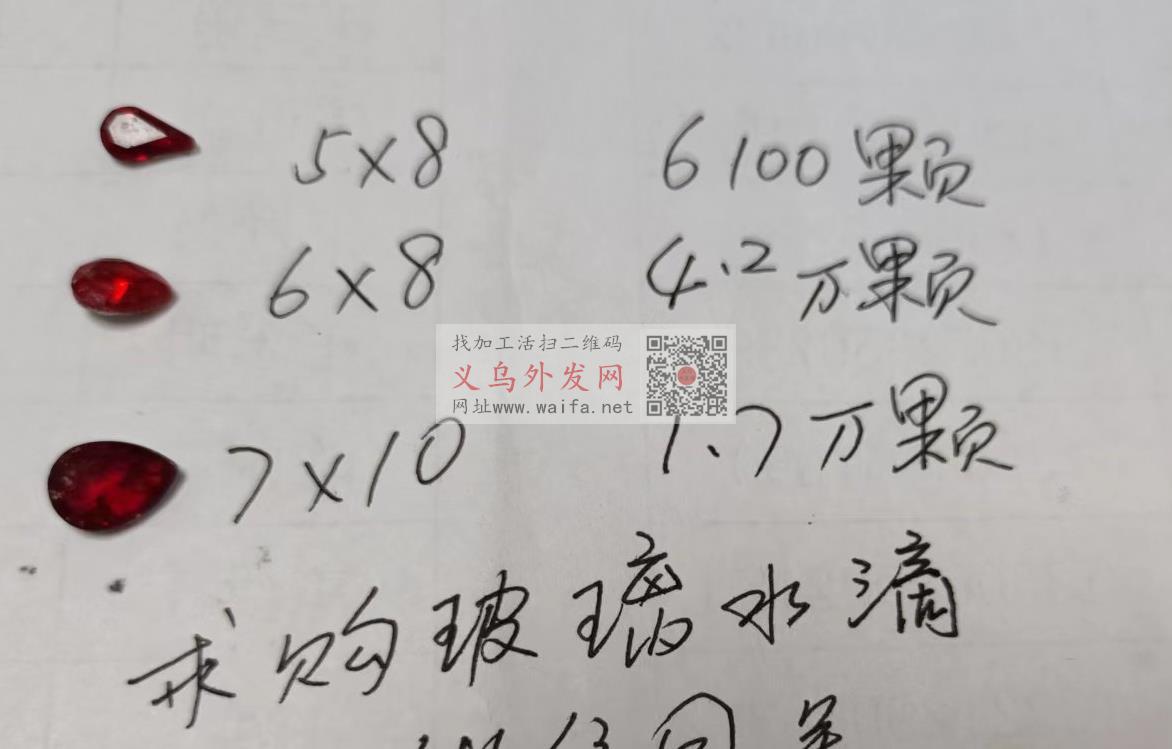 5×8 6100颗
6×8 4.2万颗
找加工活扫二维码
义乌外发网
网址www.waifa.net
7×10 1.7万颗
求购玻璃水滴